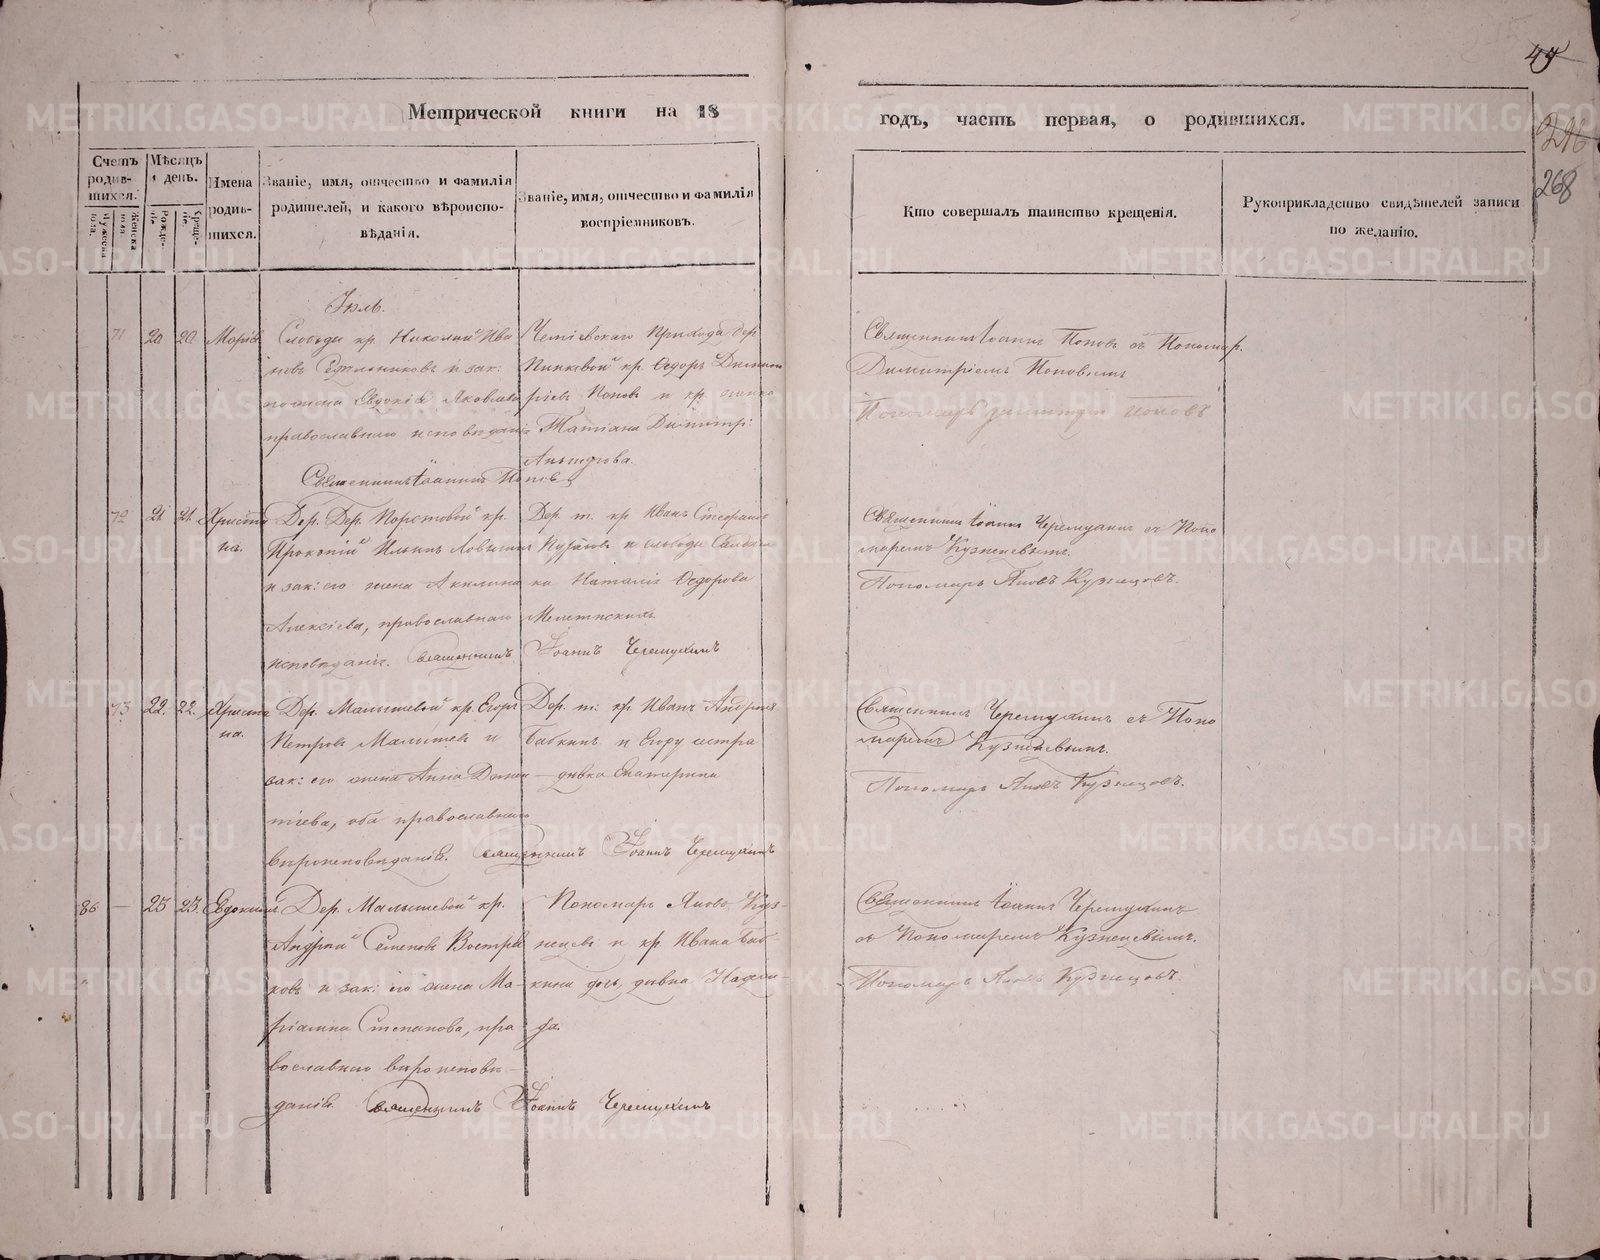 49
Метрической книги на 18
годъ, часть первая, о родившихся.
216
268
Счетъ родив-шихся.
Мѣсяцъ и день.
Имена родив-шихся.
Званіе, имя, отчество и фамилія родителей, и какого вѣроиспо-вѣданія.
Званіе, имя, отчество и фамилія воспріемниковъ.
Кто совершалъ таинство крещенія.
Рукоприкладство свидѣтелей записи по желанію.
Мужеска пола.
Женска пола.
Рожде-нія.
Креще-нія.
Іюль.
71 20 20. Марія
Слободы кр. Николай Ива
новъ и зак:
жена Евдокія Яковлева
православнаго исповѣданія
Священникъ Іоаннъ Поповъ
прихода дер.
кр. Ѳедоръ Димит
ріевъ Поповъ и кр.
Татіана Димитр:
Священникъ Іоаннъ Поповъ съ Пономар.
Димитріемъ Поповымъ
Пономарь Димитрій Поповъ
72 21. 21. Христи
на.
Дер. кр.
Прокопій Ильинъ
и зак: его жена Акилина
Алексіева, православнаго
исповѣданія. Священникъ Іоаннъ Черемухинъ
Дер. т. кр. Иванъ
и слободы
Наталія Ѳедорова
Священникъ Іоаннъ Черемухинъ съ Поно
маремъ Кузнецовымъ.
Пономарь Яковъ Кузнецовъ.
73 22. 22. Христи
на.
Дер. Малышевой кр. Егоръ
Петровъ Малышевъ и
зак: его жена Анна
оба православнаго
вѣроисповѣданія. Священникъ Іоаннъ Черемухинъ
Дер. т: кр. Иванъ Андреевъ
Бабкинъ и Егору сестра
дѣвка Екатерина
Священникъ Черемухинъ съ Поно
маремъ Кузнецовымъ.
Пономарь Яковъ Кузнецовъ.
86 — 23 23. Евдокимъ
Дер. Малышевой кр.
Андрей Семеновъ Востря
ковъ и зак: его жена Ма-
ріамна Степанова, пра
вославнаго вѣроисповѣ-
данія. Священникъ Іоаннъ Черемухинъ
Пономарь Яковъ Куз-
нецовъ и кр. Ивана Баб-
кина дочь дѣвка Надеж-
да.
Священникъ Іоаннъ Черемухинъ
съ Пономаремъ Кузнецовымъ.
Пономарь Яковъ Кузнецовъ.
METRIKI.GASO-URAL.RU